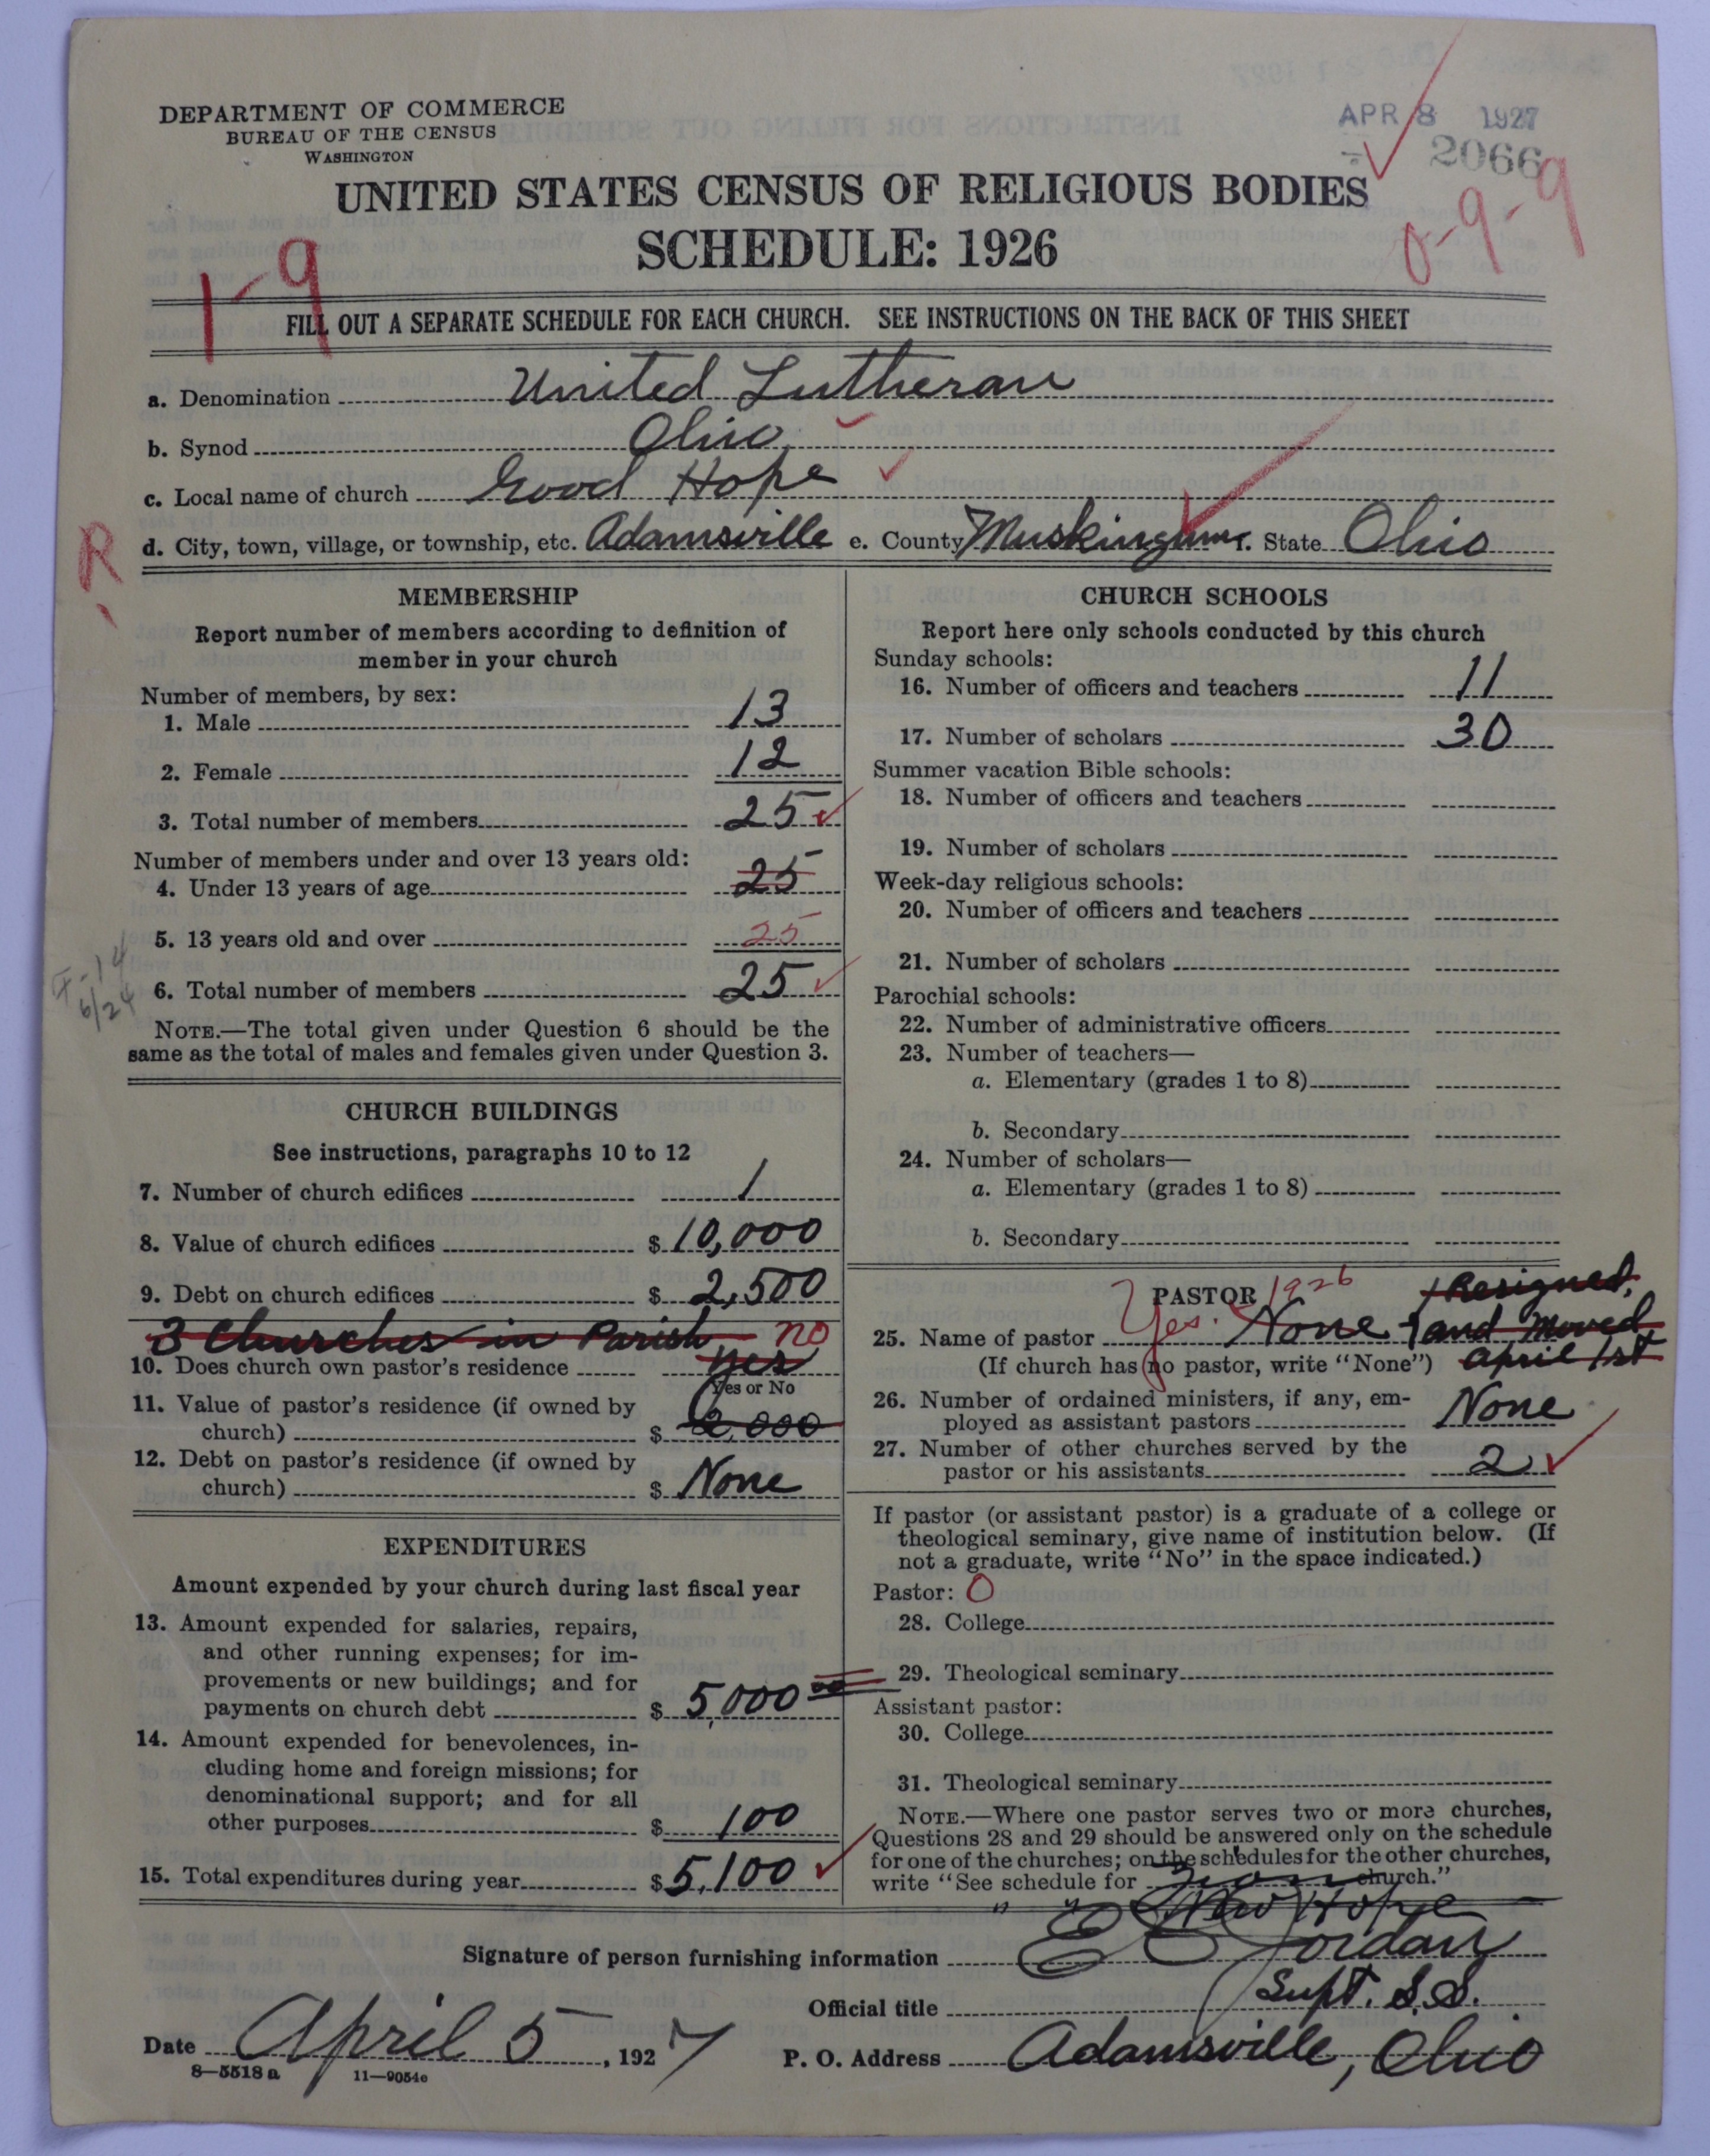 DEPARTMENT OF COMMERCE
BUREAU OF THE CENSUS
WASHINGTON
APR 8 1927
2066
UNITED STATES CENSUS OF RELIGIOUS BODIES
SCHEDULE: 1926
1-9
0-9-9
FILL OUT A SEPARATE SCHEDULE FOR EACH CHURCH. SEE INSTRUCTIONS ON THE BACK OF THIS SHEET
a. Denomination United Lutheran
b. Synod Ohio
c. Local name of church Good Hope
R
d. City, town, village, or township, etc. Adamsville e. County Muskingum f. State Ohio
MEMBERSHIP
Report number of members according to definition of
member in your church
Number of members, by sex:
1. Male 13
2. Female 12
3. Total number of members 25
Number of members under and over 13 years old:
4. Under 13 years of age 25
5. 13 years old and over 25
6. Total number of members 25
6/24
NOTE.—The total given under Question 6 should be the
same as the total of males and females given under Question 3.
CHURCH BUILDINGS
See instructions, paragraphs 10 to 12
7. Number of church edifices 1
8. Value of church edifices $ 10,000
9. Debt on church edifices $ 2,500
3 Churches in Parish no
10. Does church own pastor's residence yes
Yes or No
11. Value of pastor's residence (if owned by
church) $ 2,000
12. Debt on pastor's residence (if owned by
church) $ None
EXPENDITURES
Amount expended by your church during last fiscal year
13. Amount expended for salaries, repairs,
and other running expenses; for im-
provements or new buildings; and for
payments on church debt $ 5,000 00
14. Amount expended for benevolences, in-
cluding home and foreign missions; for
denominational support; and for all
other purposes $ 100
15. Total expenditures during year $ 5,100
CHURCH SCHOOLS
Report here only schools conducted by this church
Sunday schools:
16. Number of officers and teachers 11
17. Number of scholars 30
Summer vacation Bible schools:
18. Number of officers and teachers
19. Number of scholars
Week-day religious schools:
20. Number of officers and teachers
21. Number of scholars
Parochial schools:
22. Number of administrative officers
23. Number of teachers—
a. Elementary (grades 1 to 8)
b. Secondary
24. Number of scholars—
a. Elementary (grades 1 to 8)
b. Secondary
PASTOR 1926 Resigned,
25. Name of pastor Yes. None and moved
(If church has no pastor, write "None") april 1st
26. Number of ordained ministers, if any, em-
ployed as assistant pastors None
27. Number of other churches served by the
pastor or his assistants 2
If pastor (or assistant pastor) is a graduate of a college or
theological seminary, give name of institution below. (If
not a graduate, write "No" in the space indicated.)
Pastor: 0
28. College
29. Theological seminary
Assistant pastor:
30. College
31. Theological seminary
NOTE.—Where one pastor serves two or more churches,
Questions 28 and 29 should be answered only on the schedule
for one of the churches; on the schedules for the other churches,
write "See schedule for Zion church."
" " New Hope
Signature of person furnishing information E E Jordan
Official title Supt. S.S.
Date April 5, 1927
P. O. Address Adamsville, Ohio
8—5518 a 11—9054c